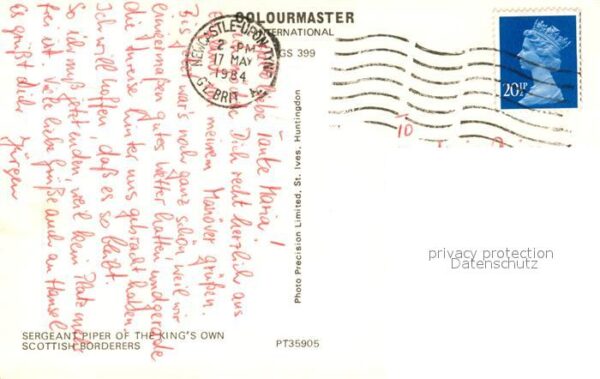 COLOURMASTER
INTERNATIONAL
GS 399
NEWCASTLE-UPON-TYNE
2 PM
17 MAY
1984
GT. BRIT
A
20½P
10
Liebe Tante Maria!
Dich recht herzlich aus
meinem Manöver grüßen.
Bis jetzt war's noch ganz schön, weil wir
einigermaßen gutes Wetter hatten und gerade
die Inverse hinter uns gebracht haben.
Ich will hoffen, daß es so bleibt.
So ich muß jetzt enden, weil kein Platz mehr
frei ist. Viele liebe Grüße auch an Hansel
Es grüßt dich
Jürgen
Photo Precision Limited, St. Ives, Huntingdon
privacy protection
Datenschutz
SERGEANT PIPER OF THE KING'S OWN
SCOTTISH BORDERERS
PT35905